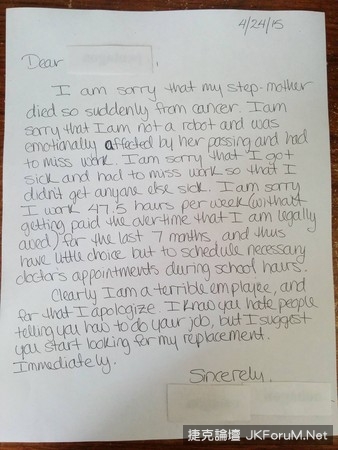 4/24/15
Dear ,
I am sorry that my step-mother
died so suddenly from cancer. I am
sorry that I am not a robot and was
emotionally affected by her passing and had
to miss work. I am sorry that I got
sick and had to miss work so that I
didn't get anyone else sick. I am sorry
I work 47.5 hours per week (without
getting paid the overtime that I am legally
owed) for the last 7 months, and thus
have little choice but to schedule necessary
doctor's appointments during school hours.
Clearly I am a terrible employee, and
for that I apologize. I know you hate people
telling you how to do your job, but I suggest
you start looking for my replacement.
Immediately.
Sincerely,
捷克論壇 JKForuM.Net